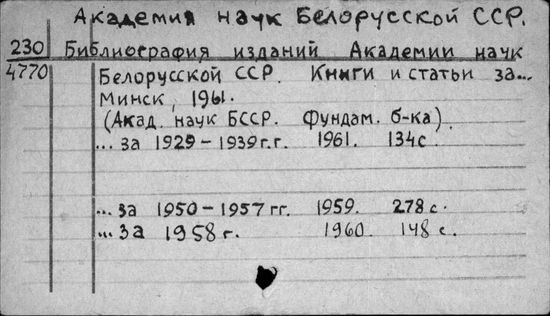 Академия наук Белорусской ССР.
230 Библиография изданий Академии наук
4770 Белорусской ССР. Книги и статьи за...
Минск, 1961.
(Акад. наук БССР. Фундам. б-ка).
... за 1929 - 1939 г.г. 1961. 134 с.
... за 1950 - 1957 гг. 1959. 278 с.
... за 1958 г. 1960. 148 с.